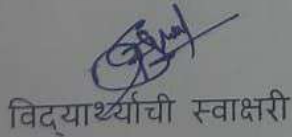 विद्यार्थ्याची स्वाक्षरी